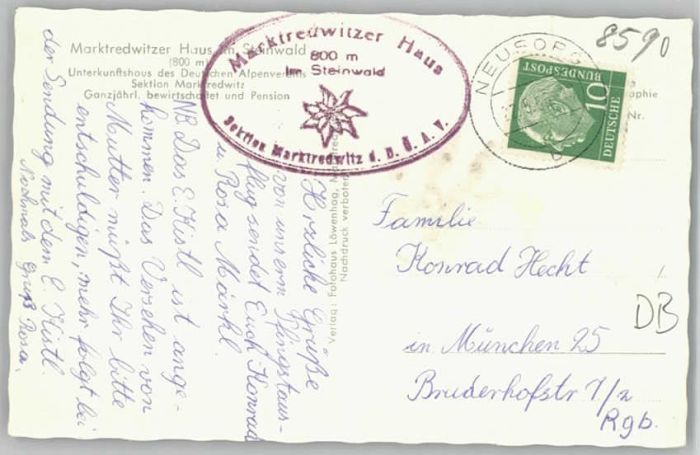 Marktredwitzer Haus im Steinwald
(800 m)
Unterkunftshaus des Deutschen Alpenvereins
Sektion Marktredwitz
Ganzjährl. bewirtschaftet und Pension
Marktredwitzer Haus
800 m
im Steinwald
Sektion Marktredwitz d. D. Ö. A. V.
NEUSORG
DEUTSCHE
BUNDESPOST
10
8590
Herzliche Grüße
von unserm Pfingstaus-
flug sendet Euch Konrad
u. Rosa Märkl.
NB Das E. Kistl ist ange-
kommen. Das Versehen von
Mutter müßt Ihr bitte
entschuldigen, mehr folgt bei
der Sendung mit dem E. Kistl.
Nochmals Gruß Rosa.
Verlag: Fotohaus Löwenhag,
Nachdruck verboten
Familie
Konrad Hecht
in München 25
Bruderhofstr 7/2
Rgb.
DB